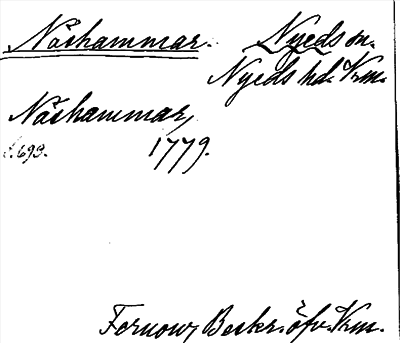 Näshammar. Nyeds sn.
Nyeds hd. Krm.
Näshammar,
s. 693. 1779.
Fernow, Beskr. öfv. Krm.